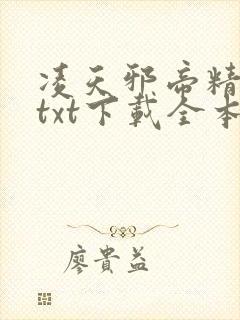 凌天邪帝精
txt下载全本
廖貴益